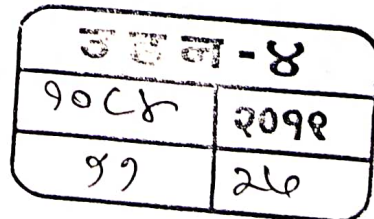 उहन-४
१०८४ २०११
२६